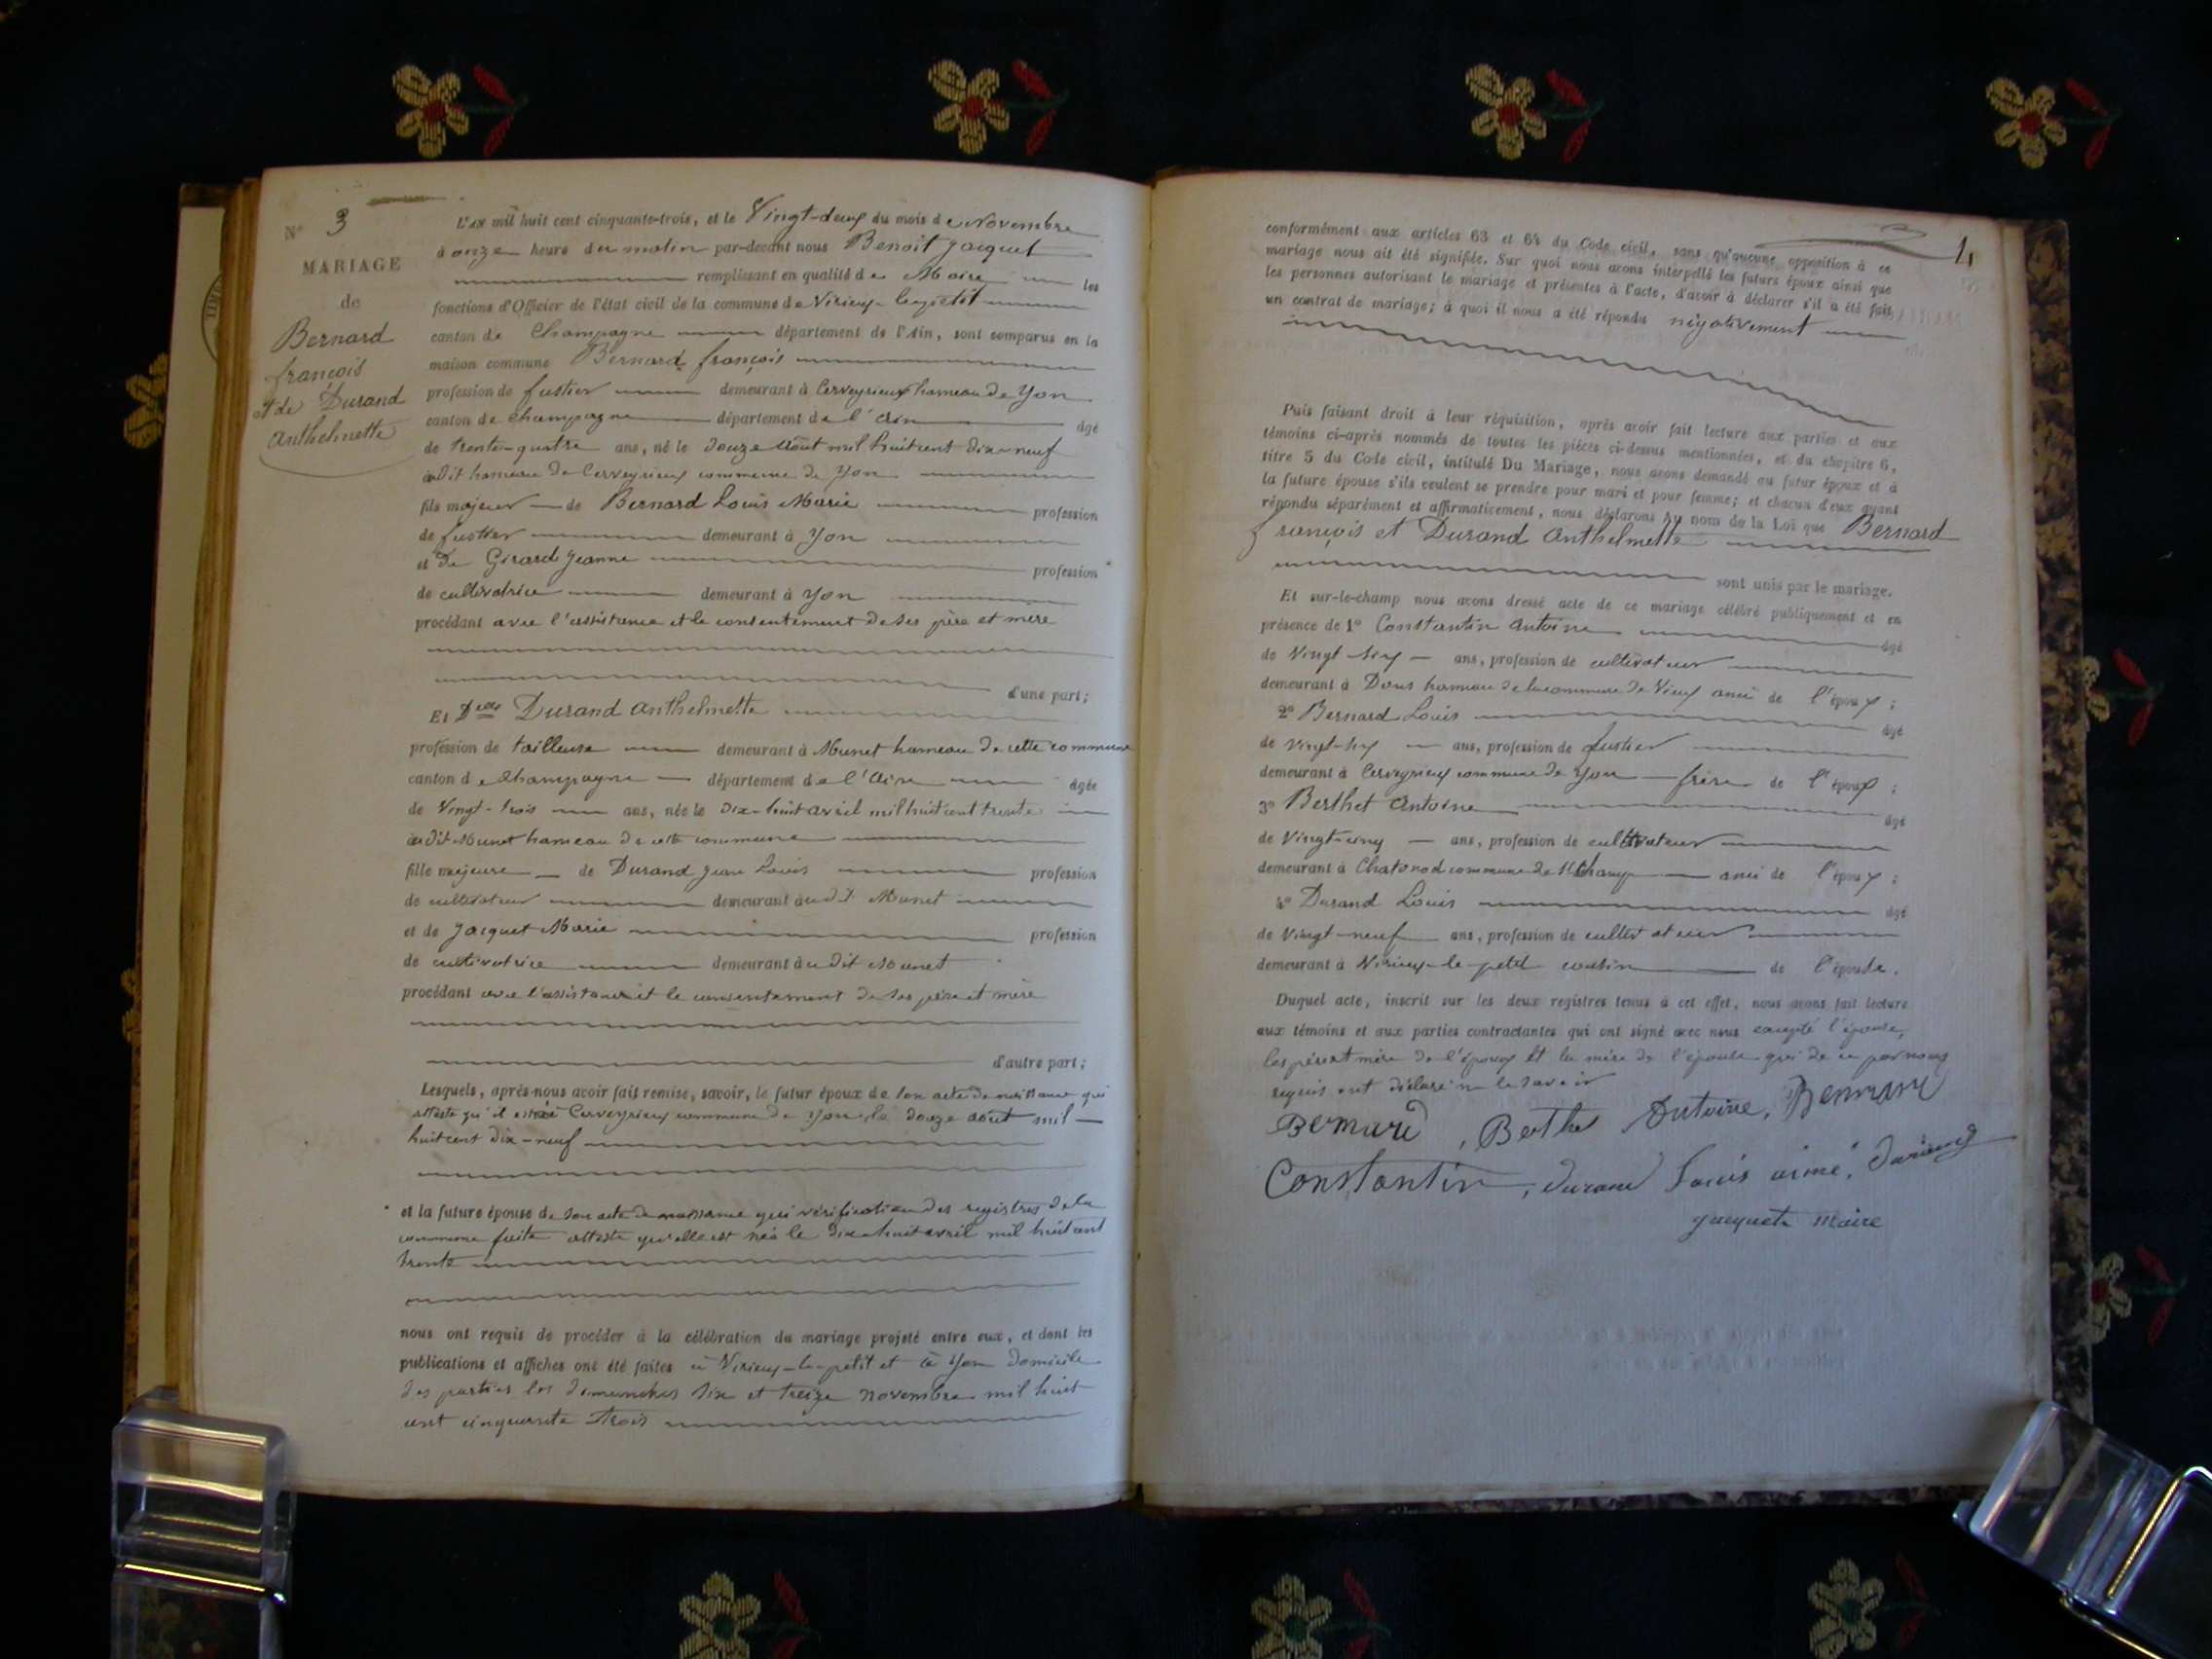 N° 3
MARIAGE
de
Bernard
françois
et de Durand
Anthelmette
L'an mil huit cent cinquante-trois, et le Vingt-deux du mois de Novembre
à onze heure du matin par-devant nous Benoit Jacquet
remplissant en qualité de Maire les
fonctions d'Officier de l'état civil de la commune de Virieu-le-petit
canton de Champagne département de l'Ain, sont comparus en la
maison commune Bernard françois
profession de fustier demeurant à Cerveyrieux hameau de Yon
canton de Champagne département de l'Ain âgé
de trente-quatre ans, né le douze Août mil huit cent dix-neuf
audit hameau de Cerveyrieux commune de Yon
fils majeur de Bernard Louis Marie profession
de fustier demeurant à Yon
et de Girard Jeanne profession
de cultivatrice demeurant à Yon
procédant avec l'assistance et le consentement de ses père et mère
d'une part;
Et Delle Durand Anthelmette
profession de tailleuse demeurant à Munet hameau de cette commune
canton de Champagne département de l'Ain âgée
de Vingt-trois ans, née le dix-huit avril mil huit cent trente
audit Munet hameau de cette commune
fille majeure de Durand Jean Louis profession
de cultivateur demeurant audit Munet
et de Jacquet Marie profession
de cultivatrice demeurant audit Munet
procédant avec l'assistance et le consentement de ses père et mère
d'autre part;
Lesquels, après nous avoir fait remise, savoir, le futur époux de son acte de naissance qui
atteste qu'il est né à Cerveyrieux commune de Yon le douze août mil
huit cent dix-neuf
et la future épouse de son acte de naissance qui vérification des registres de la
commune faite atteste qu'elle est née le dix-huit avril mil huit cent
trente
nous ont requis de procéder à la célébration du mariage projeté entre eux, et dont les
publications et affiches ont été faites à Virieu-le-petit et à Yon domicile
des parties les dimanches six et treize novembre mil huit
cent cinquante trois
4
conformément aux articles 63 et 64 du Code civil, sans qu'aucune opposition à ce
mariage nous ait été signifiée. Sur quoi nous avons interpellé les futurs époux ainsi que
les personnes autorisant le mariage et présentes à l'acte, d'avoir à déclarer s'il a été fait
un contrat de mariage; à quoi il nous a été répondu négativement
Puis faisant droit à leur réquisition, après avoir fait lecture aux parties et aux
témoins ci-après nommés de toutes les pièces ci-dessus mentionnées, et du chapitre 6,
titre 5 du Code civil, intitulé Du Mariage, nous avons demandé au futur époux et à
la future épouse s'ils veulent se prendre pour mari et pour femme; et chacun d'eux ayant
répondu séparément et affirmativement, nous déclarons au nom de la Loi que Bernard
françois et Durand Anthelmette
sont unis par le mariage.
Et sur-le-champ nous avons dressé acte de ce mariage célébré publiquement et en
présence de 1° Constantin Antoine âgé
de Vingt-six ans, profession de cultivateur
demeurant à Dons hameau de la commune de Vieux ami de l'époux;
2° Bernard Louis âgé
de Vingt-six ans, profession de fustier
demeurant à Cerveyrieux commune de Yon frère de l'époux;
3° Berthet Antoine âgé
de Vingt-cinq ans, profession de cultivateur
demeurant à Chatonod commune de St Champ ami de l'époux;
4° Durand Louis âgé
de Vingt-neuf ans, profession de cultivateur
demeurant à Virieux-le-petit cousin de l'épouse.
Duquel acte, inscrit sur les deux registres tenus à cet effet, nous avons fait lecture
aux témoins et aux parties contractantes qui ont signé avec nous excepté l'épouse,
les père et mère de l'époux et la mère de l'épouse qui de ce par nous
requis ont déclaré ne le savoir
Bernard, Berthet Antoine, Bernard
Constantin, durand Louis aimé, durand
Jacquet Maire